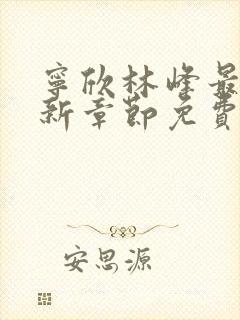 寧欣林峰最
新章節免費
安思源